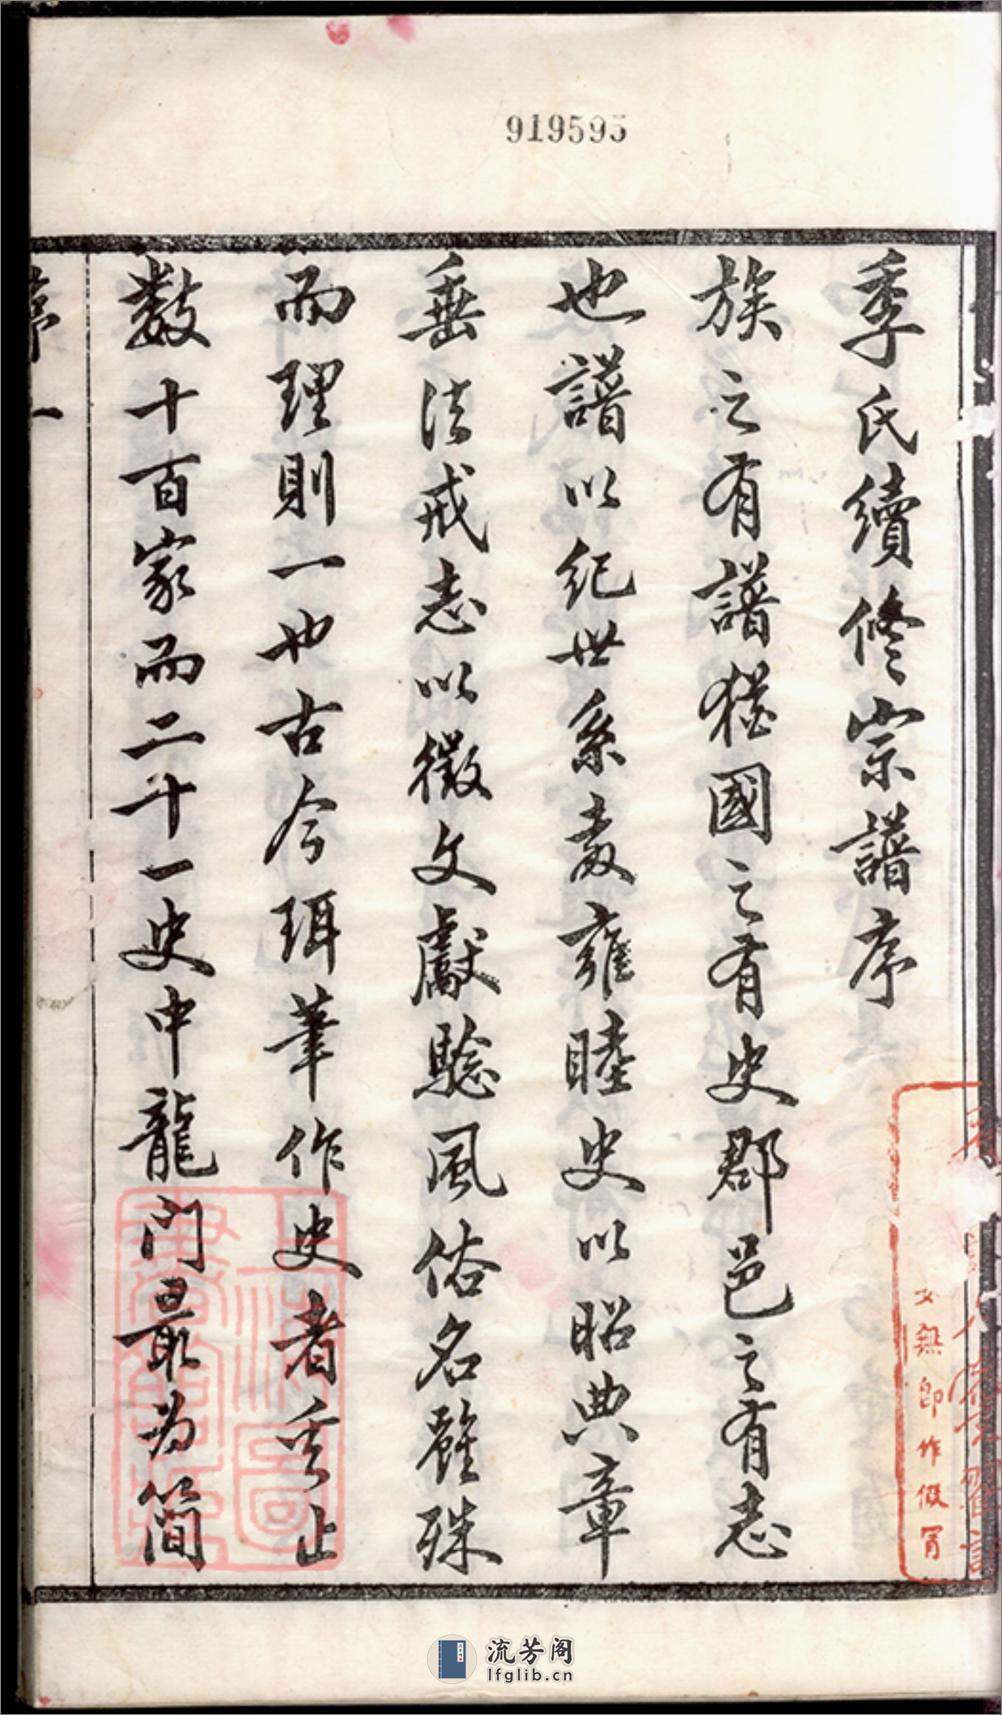 919595
季氏續修宗譜序
族之有譜猶國之有史郡邑之有志
也譜以紀世系敦雍睦史以昭典章
垂法戒志以徵文獻驗風俗名雖殊
而理則一也古今珥筆作史者奚止
數十百家而二十一史中龍門最為簡
序 一
無印作假冒
流芳阁
lfglib.cn